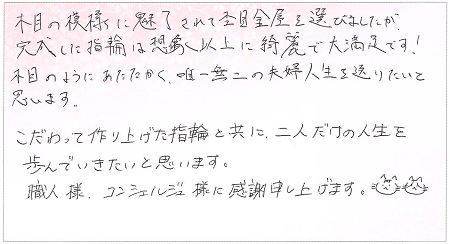 木目の模様に魅了されて杢目金屋を選びましたが、
完成した指輪は想像以上に綺麗で大満足です!
木目のようにあたたかく、唯一無二の夫婦人生を送りたいと
思います。
こだわって作り上げた指輪と共に、二人だけの人生を
歩んでいきたいと思います。
職人様、コンシェルジュ様に感謝申し上げます。